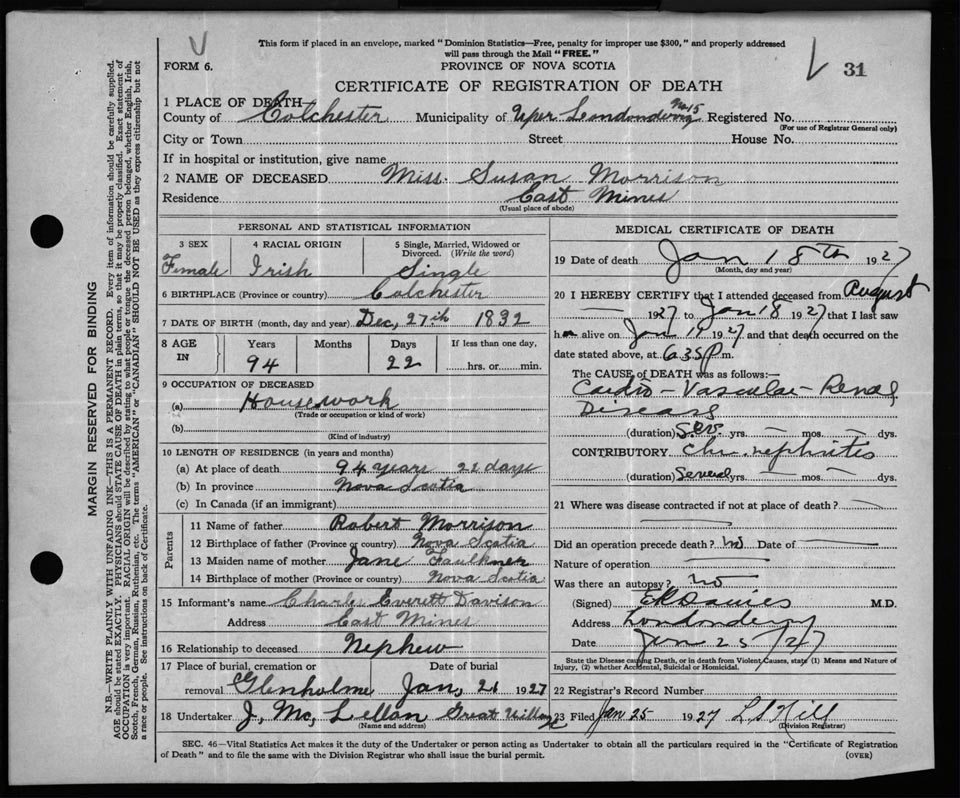 This form if placed in an envelope, marked "Dominion Statistics—Free, penalty for improper use $300," and properly addressed
will pass through the Mail "FREE."
FORM 6.
PROVINCE OF NOVA SCOTIA
31
CERTIFICATE OF REGISTRATION OF DEATH
1 PLACE OF DEATH—
County of Colchester Municipality of Uper Londonderry No 15 Registered No.
(For use of Registrar General only)
City or Town Street House No.
If in hospital or institution, give name
2 NAME OF DECEASED Miss. Susan Morrison
Residence East Mines
(Usual place of abode)
PERSONAL AND STATISTICAL INFORMATION
3 SEX 4 RACIAL ORIGIN 5 Single, Married, Widowed or
Divorced. (Write the word)
Female Irish Single
6 BIRTHPLACE (Province or country) Colchester
7 DATE OF BIRTH (month, day and year) Dec, 27th 1832
8 AGE IN Years Months Days If less than one day,
94 22 hrs. or min.
9 OCCUPATION OF DECEASED
(a) Housework
(Trade or occupation or kind of work)
(b)
(Kind of industry)
10 LENGTH OF RESIDENCE (in years and months)
(a) At place of death 94 years 22 days
(b) In province Nova Scotia
(c) In Canada (if an immigrant)
Parents
11 Name of father Robert Morrison
12 Birthplace of father (Province or country) Nova Scotia
13 Maiden name of mother Jane Faulkner
14 Birthplace of mother (Province or country) Nova Scotia
15 Informant's name Charles Everett Davison
Address East Mines
16 Relationship to deceased Nephew
17 Place of burial, cremation or Date of burial
removal Glenholme Jan, 21 1927
18 Undertaker J, Mc, Lellan Great Village
(Name and address)
MEDICAL CERTIFICATE OF DEATH
19 Date of death Jan 18th 1927
(Month, day and year)
20 I HEREBY CERTIFY that I attended deceased from August
— 1927 to Jan 18 1927 that I last saw
h alive on Jan 1927 and that death occurred on the
date stated above, at 6.35 P m.
The CAUSE OF DEATH was as follows:
Cardio-Vascular-Renal
Disease
(duration) Sev. yrs. — mos. — dys.
CONTRIBUTORY Chr. nephritis
(duration) Several yrs. — mos. — dys.
21 Where was disease contracted if not at place of death? —
Did an operation precede death? No Date of —
Nature of operation —
Was there an autopsy? No
(Signed) E R Davies M.D.
Address Londonderry
Date Jan 25/27
State the Disease causing Death, or in death from Violent Causes, state (1) Means and Nature of
Injury, (2) whether Accidental, Suicidal or Homicidal.
22 Registrar's Record Number
23 Filed Jan 25 1927 L S Hill
(Division Registrar)
SEC. 46—Vital Statistics Act makes it the duty of the Undertaker or person acting as Undertaker to obtain all the particulars required in the "Certificate of Registration
of Death" and to file the same with the Division Registrar who shall issue the burial permit. (OVER)
MARGIN RESERVED FOR BINDING
N.B.—WRITE PLAINLY WITH UNFADING INK—THIS IS A PERMANENT RECORD. Every item of information should be carefully supplied.
AGE should be stated EXACTLY. PHYSICIANS should STATE CAUSE OF DEATH in plain terms, so that it may be properly classified. Exact statement of
OCCUPATION is very important. RACIAL ORIGIN will be described by stating to what people or tongue the deceased person belonged, whether English, Irish,
Scotch, French, German, Russian, Ruthenian, etc. The terms "AMERICAN" or "CANADIAN" SHOULD NOT BE USED as they express citizenship but not
a race or people. See instructions on back of Certificate.